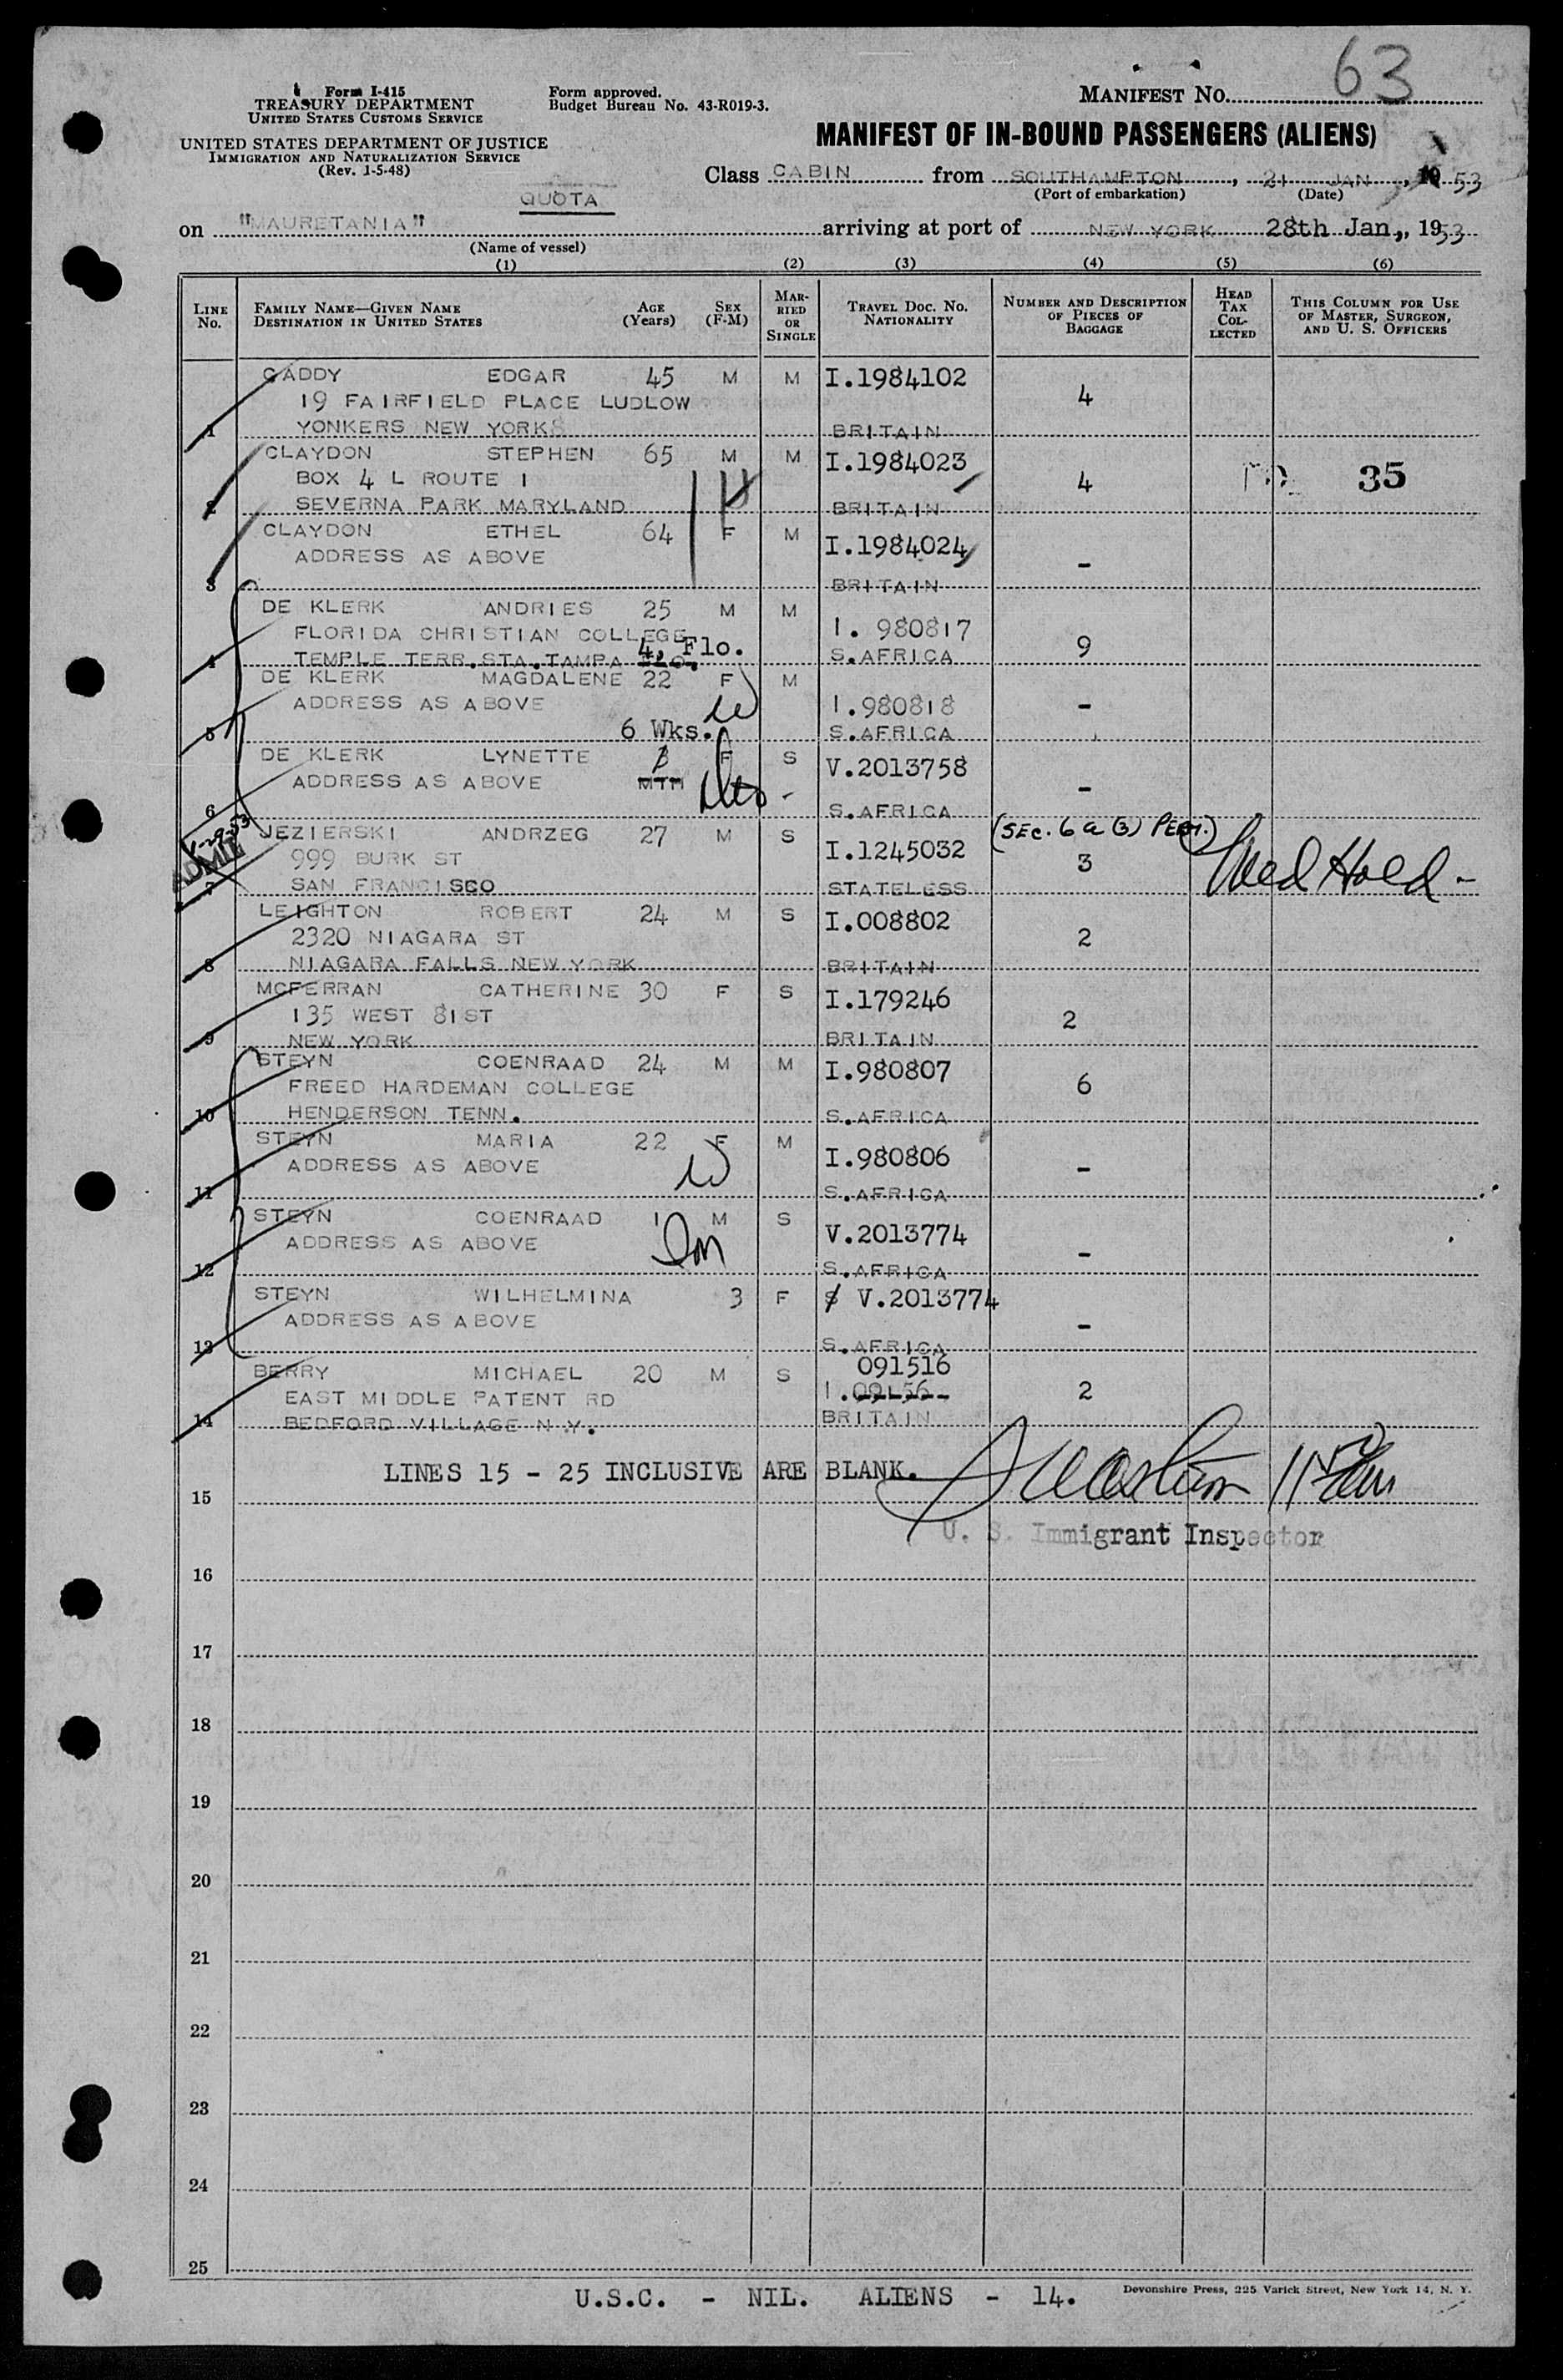 63
Form I-415
TREASURY DEPARTMENT
UNITED STATES CUSTOMS SERVICE
UNITED STATES DEPARTMENT OF JUSTICE
IMMIGRATION AND NATURALIZATION SERVICE
(Rev. 1-5-48)
Form approved.
Budget Bureau No. 43-R019-3.
MANIFEST NO.
MANIFEST OF IN-BOUND PASSENGERS (ALIENS)
Class CABIN from SOUTHAMPTON, 21 JAN, 1953
(Port of embarkation) (Date)
QUOTA
on "MAURETANIA" arriving at port of NEW YORK 28th Jan., 1953
(Name of vessel)
(1) (2) (3) (4) (5) (6)
LINE No. FAMILY NAME—GIVEN NAME DESTINATION IN UNITED STATES AGE (Years) SEX (F-M) MARRIED OR SINGLE TRAVEL DOC. NO. NATIONALITY NUMBER AND DESCRIPTION OF PIECES OF BAGGAGE HEAD TAX COLLECTED THIS COLUMN FOR USE OF MASTER, SURGEON, AND U. S. OFFICERS
GADDY EDGAR 45 M M I.1984102
19 FAIRFIELD PLACE LUDLOW 4
1 YONKERS NEW YORK BRITAIN
CLAYDON STEPHEN 65 M M I.1984023
BOX 4 L ROUTE 1 4 35
2 SEVERNA PARK MARYLAND BRITAIN
CLAYDON ETHEL 64 F M I.1984024
ADDRESS AS ABOVE -
3 BRITAIN
DE KLERK ANDRIES 25 M M
FLORIDA CHRISTIAN COLLEGE I. 980817 9
4 TEMPLE TERR.STA.TAMPA 4, Flo. S.AFRICA
DE KLERK MAGDALENE 22 F M
ADDRESS AS ABOVE I.980818 -
5 6 Wks. S.AFRICA
DE KLERK LYNETTE 3 F S V.2013758
ADDRESS AS ABOVE MTH -
6 S.AFRICA
1-29-53
ADMIT
(SEC. 6 a (3) PERM.)
JEZIERSKI ANDRZEG 27 M S I.1245032
999 BURK ST 3 Med Hold -
7 SAN FRANCISCO STATELESS
LEIGHTON ROBERT 24 M S I.008802
2320 NIAGARA ST 2
8 NIAGARA FALLS NEW YORK BRITAIN
MCFERRAN CATHERINE 30 F S I.179246
135 WEST 81ST 2
9 NEW YORK BRITAIN
STEYN COENRAAD 24 M M I.980807
FREED HARDEMAN COLLEGE 6
10 HENDERSON TENN. S.AFRICA
STEYN MARIA 22 F M I.980806
ADDRESS AS ABOVE -
11 S.AFRICA
STEYN COENRAAD 1 M S V.2013774
ADDRESS AS ABOVE -
12 S.AFRICA
STEYN WILHELMINA 3 F S V.2013774
ADDRESS AS ABOVE -
13 S.AFRICA
BERRY MICHAEL 20 M S 091516
EAST MIDDLE PATENT RD I.09156 2
14 BEDFORD VILLAGE N.Y. BRITAIN
LINES 15 - 25 INCLUSIVE ARE BLANK.
15
U. S. Immigrant Inspector
16
17
18
19
20
21
22
23
24
25
U.S.C. - NIL. ALIENS - 14.
Devonshire Press, 225 Varick Street, New York 14, N. Y.